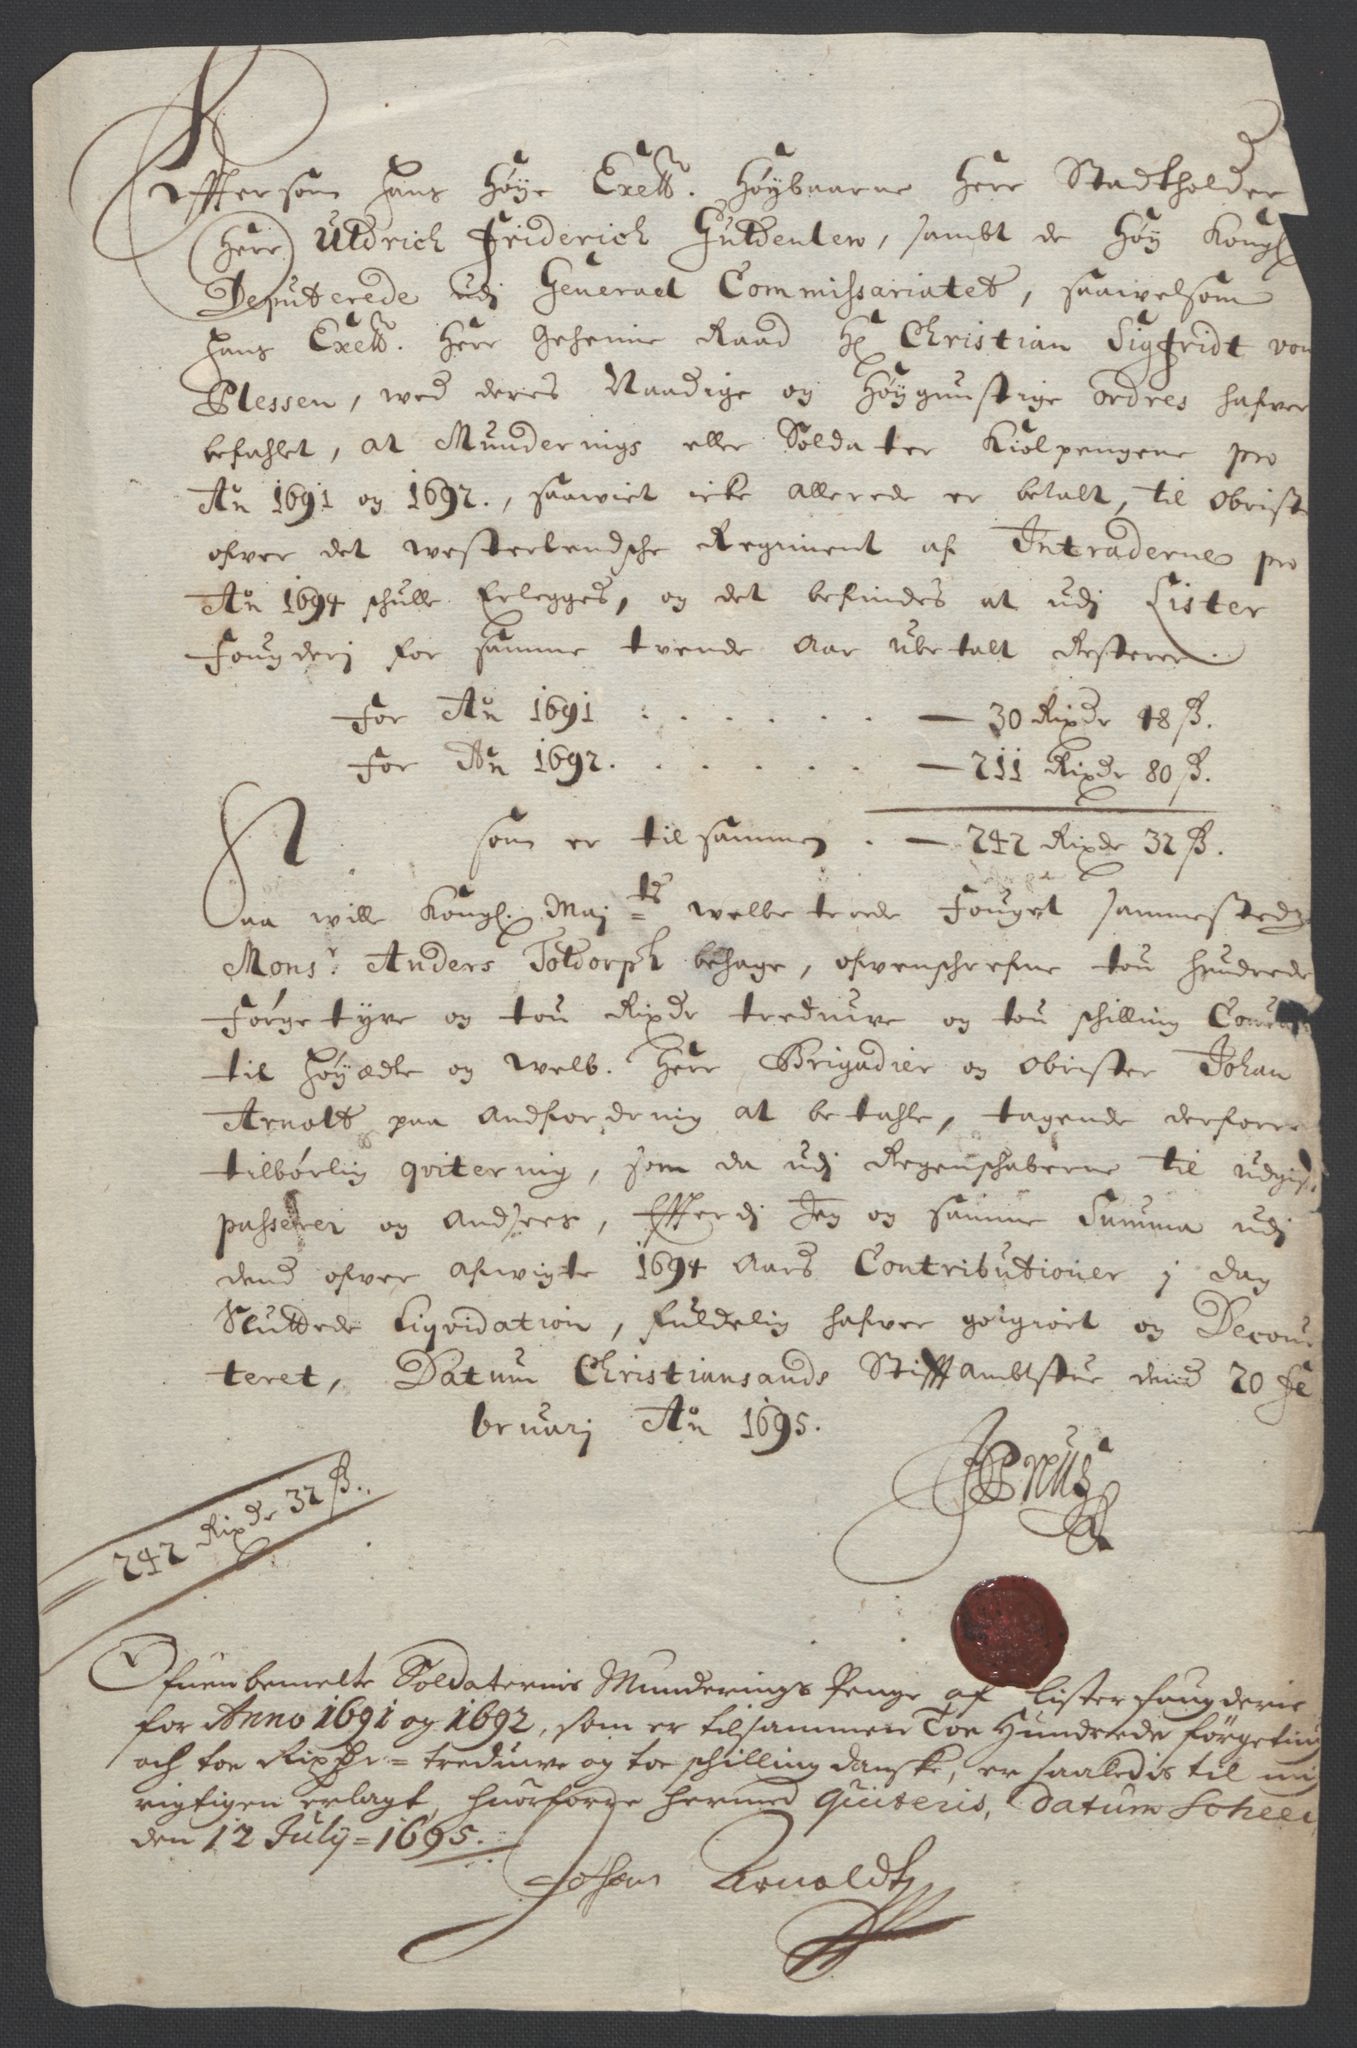 Effter som hans høye Excell: høybaarne herr Stadtholder
herr Uldrich Friderich Guldenlew, sambt de høy Kongl
Deputerede udj General Commissariatet, saawelsom
hans Excell: herr Geheime Raad Hr Christian Sigfridt von
Plessen, wed deres Naadige og høygunstige ordres hafver
befahlet, at Munderings eller Soldater Kiolpengene pro
An 1691 og 1692., saawiet icke allerede er betalt, til obrist
ofver det westerlendsche Regiment af Intraderne pro
An 1694 schulle Erlegges, og det befindes at udj Lister
fougderj for samme tvende Aar ubetalt Resterer.
for An 1691 : . . . . . — 30 Rixdr 48 ß.
for An 1692. . . . . . — 211 Rixdr 80 ß.
som er tilsammen . — 242 Rixdr 32 ß.
Saa wille Kongl. Maj=ts welbetroede fouget sammesteds
Monsr. Anders Toldorph behage, ofvenschrefne tou hundrede
førgetyve og tou Rixdr trediuve og tou schilling
til høyædle og welb. herr Brigadier og obrister Johan
Arnolt paa andfordring at betahle, tagende derforre
tilbørlig qvitering, som da udj Regenschaberne til udgift
passerer og andsees, Effterdj Jeg og samme Summa udj
dend ofver afwigte 1694 Aars Contributioner j dag
Sluttede Liqvidation, fuldelig hafver godgiort og Decour
teret, Datum Christiansands StifftAmbtstue dend 20 fe
bruarj An 1695.
242 Rixdr 32 ß.
Ofuenbemelte Soldaternis Munderings Penge af Lister faugderie
for Anno 1691 og 1692, som er tilsammen Toe Hundrede førgetiug
och toe Rixdr = trediuve og toe schilling danske, er saaledis til mig
rigtigen erlagt, huorforre hermed Quiteris, Datum Scheen
den 12 July = 1695.
Johan Arnoldt